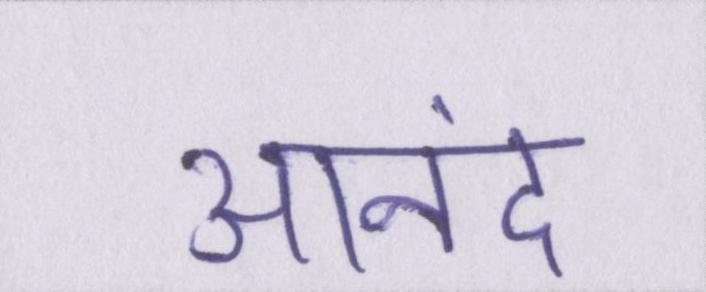 आनंद